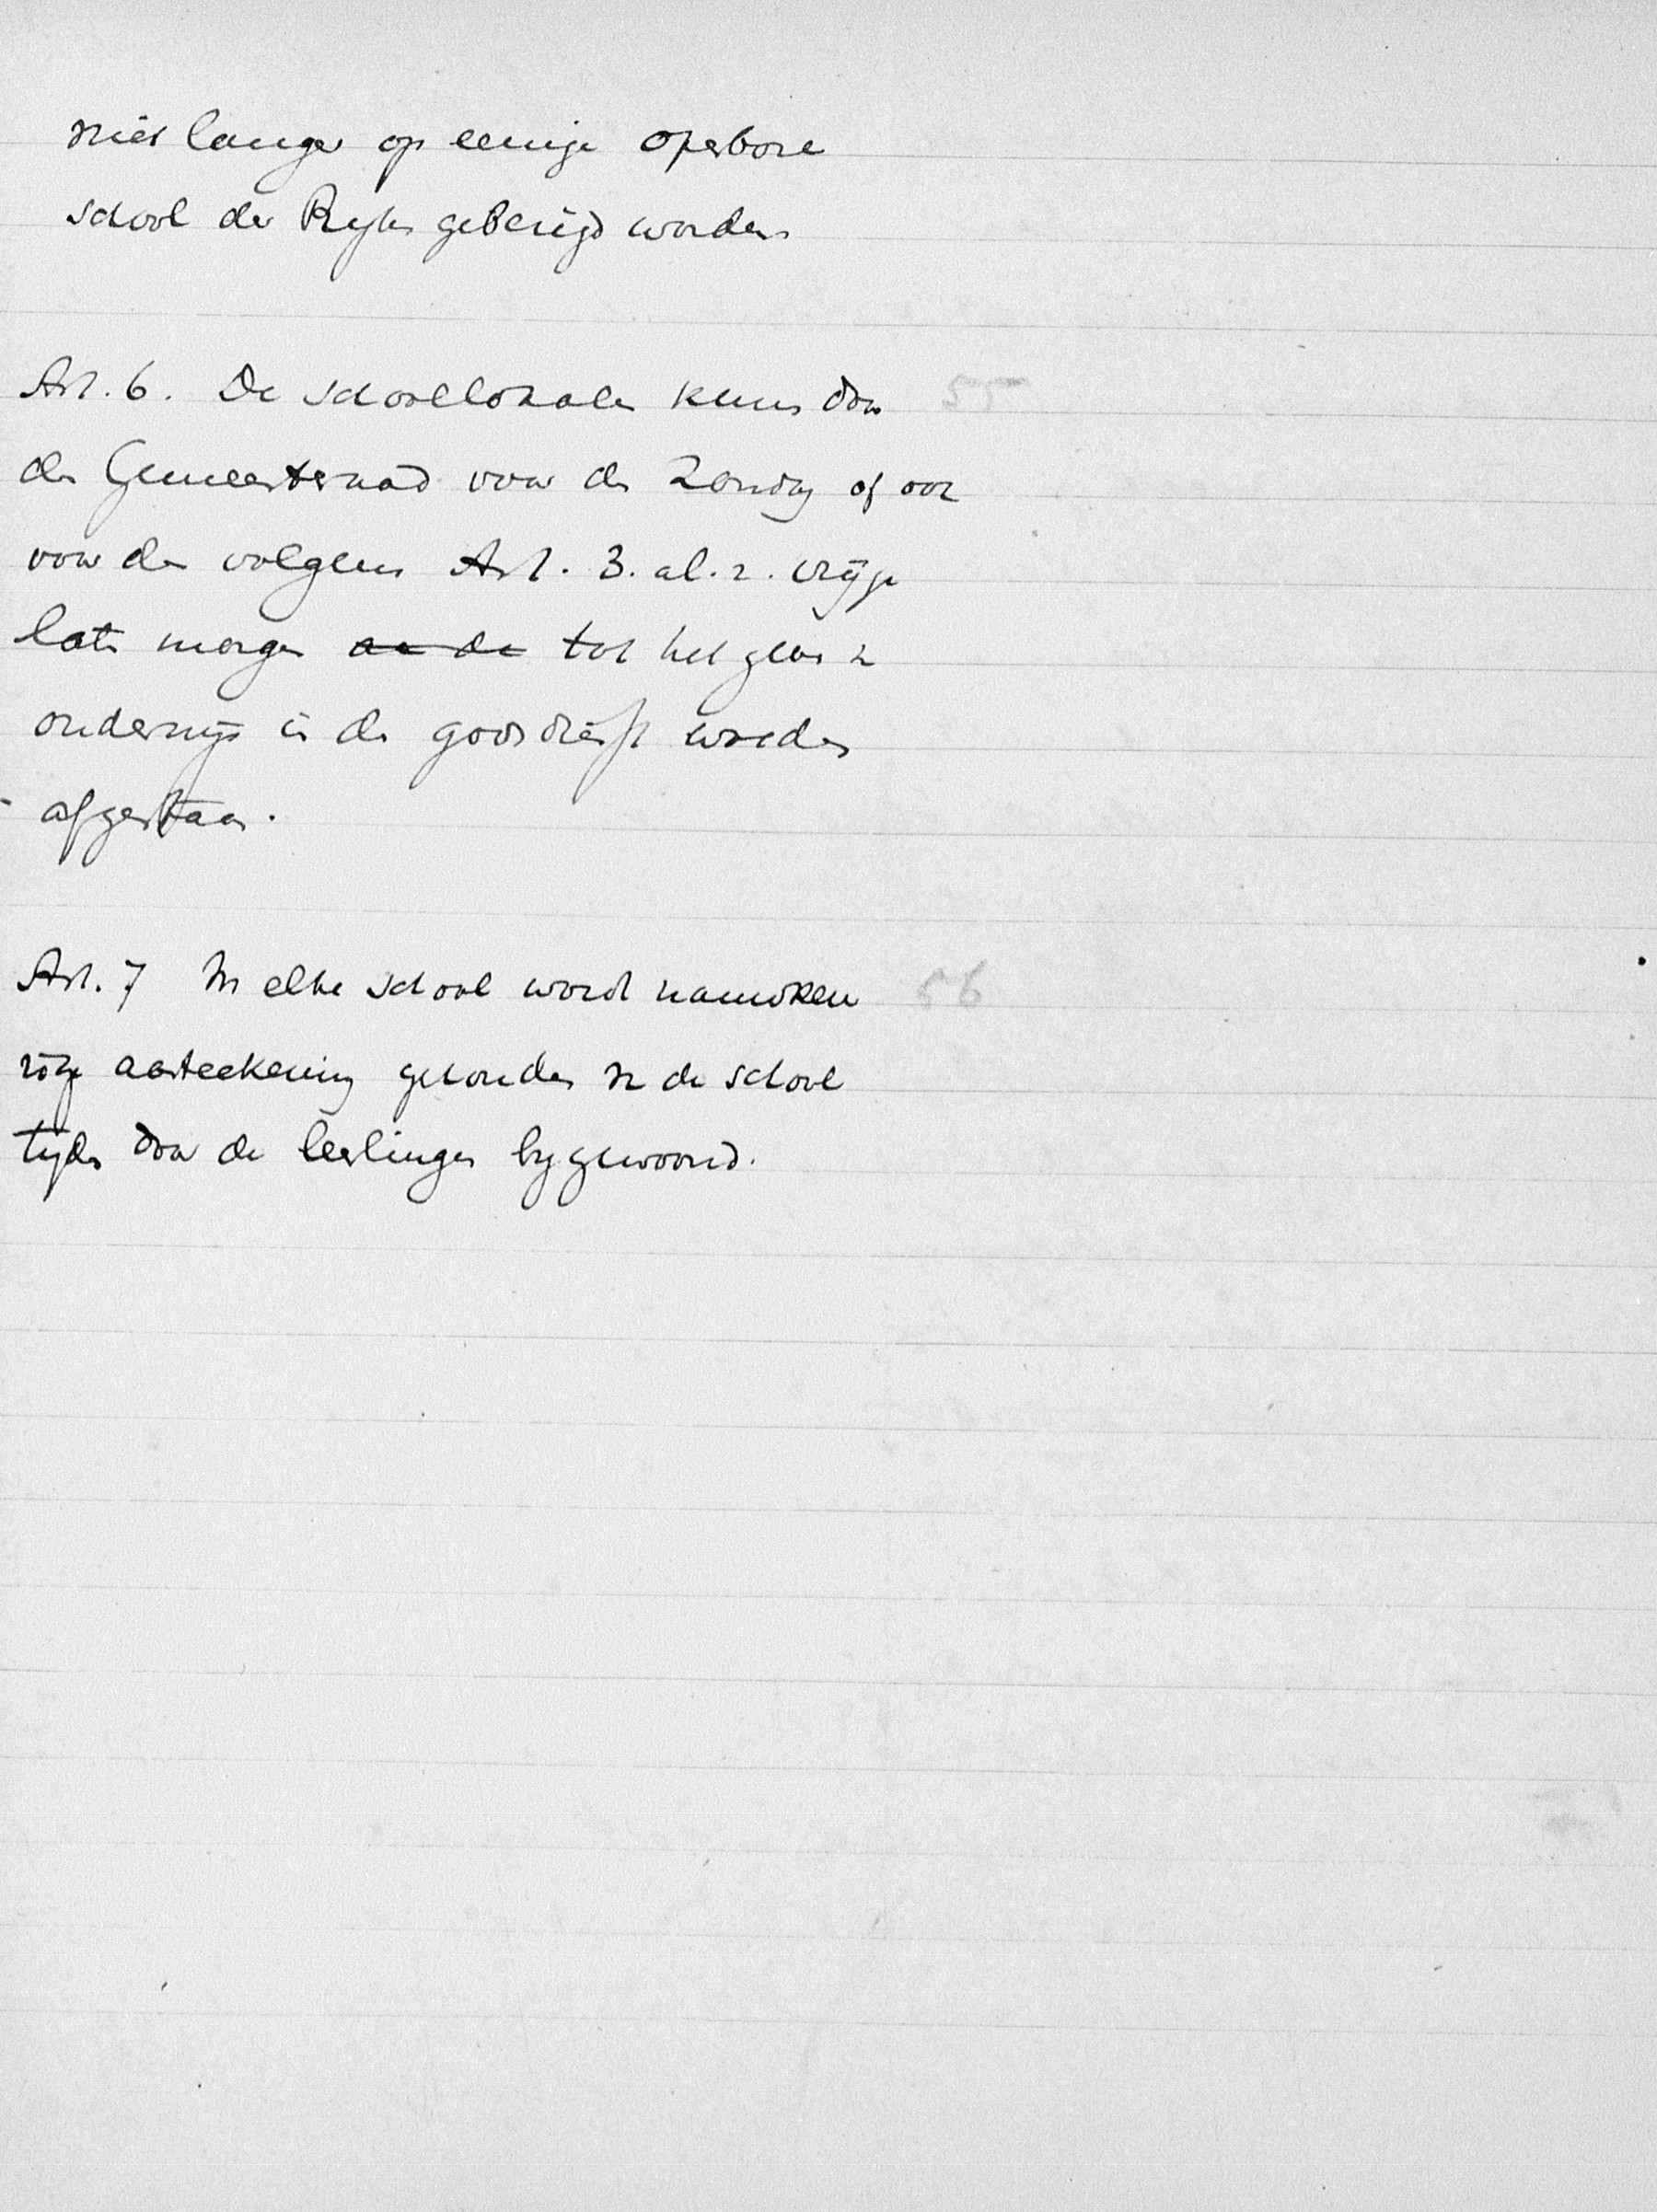 niet langer op eenige openbare
school des Ryks gebezigd worden
Art. 6. De schoollokalen kunnen door 55
den Gemeenteraad voor den Zondag of ook
voor den volgens Art. 3. al. 2. vrij te
laten morgen an de tot het geven v
onderwijs in de godsdienst worden
afgestaan.
Art. 7 In elke school wordt nauwkeu 56
rige aanteekening gehouden v de school
tijden door de leerlingen bygewoond.